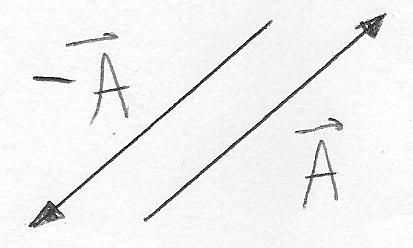 -A⃗
A⃗